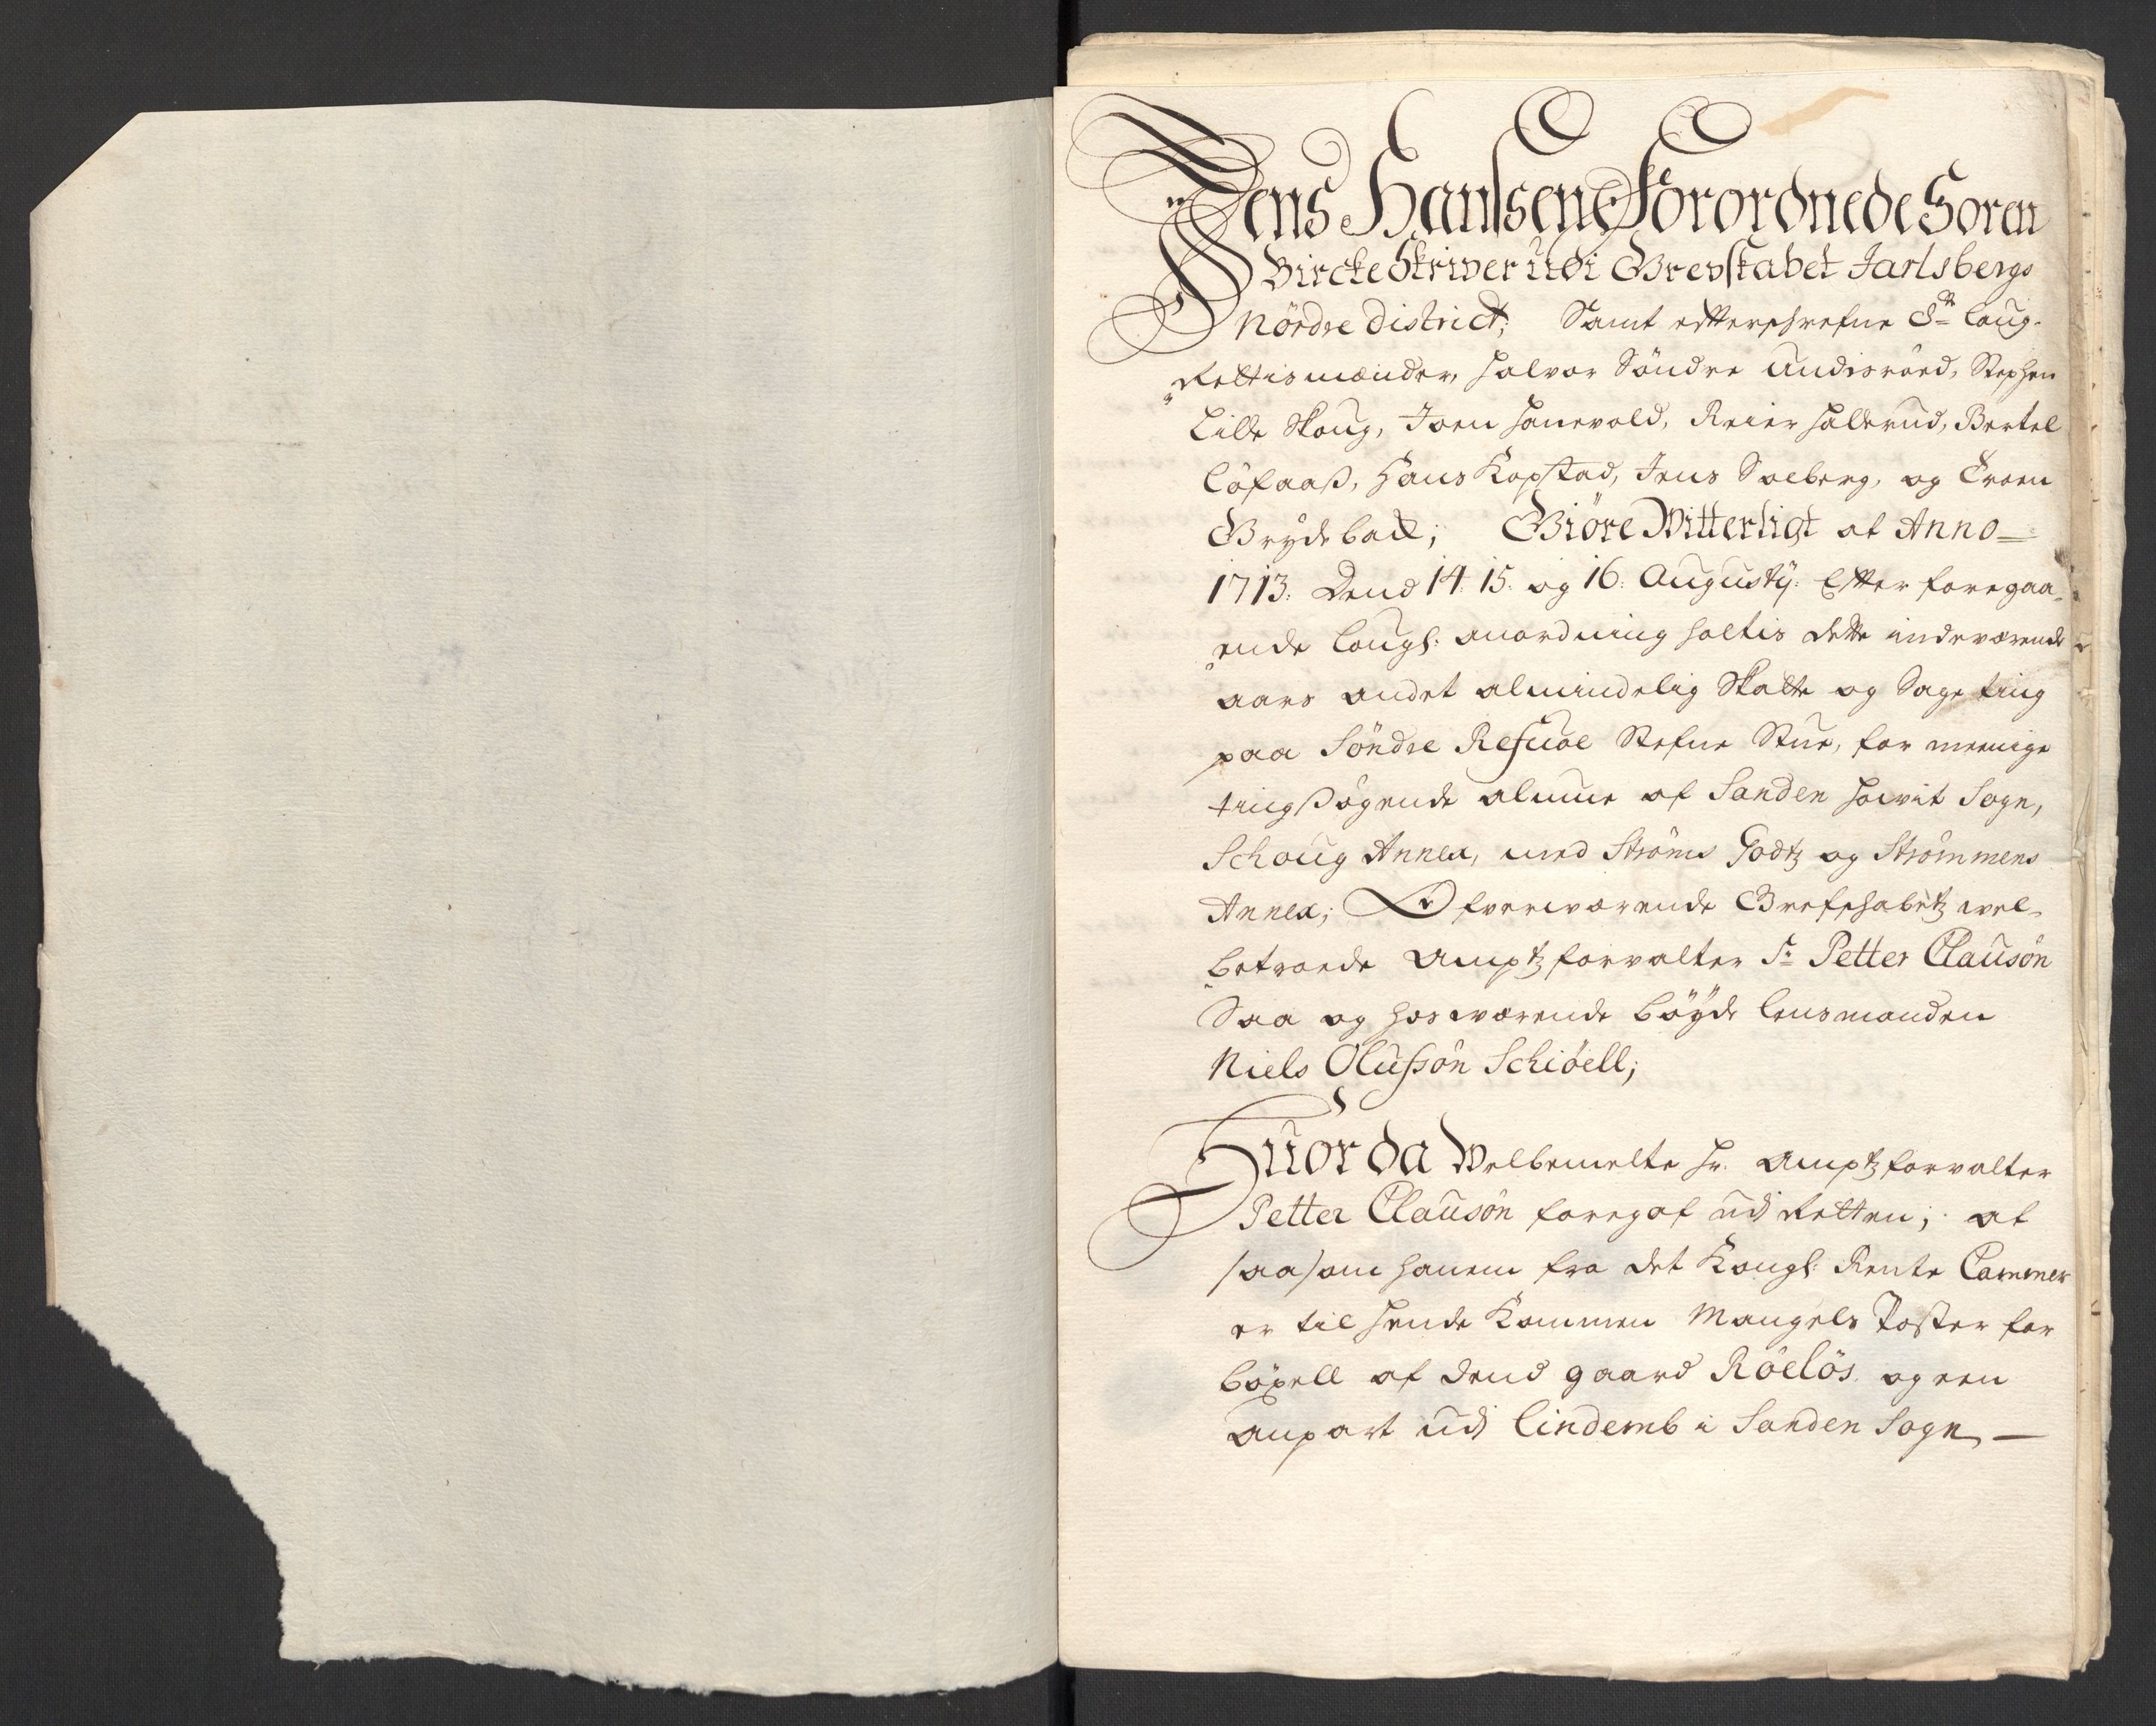 Jens Hansen Forordnede Soren
Bircke Skriver udi Grevskabet Jarlsbergs
Nördre District; Samt effterschrefne 8te Laug-
Rettismænder, Halvor Söndre Undisröed, Stephen
Lille Skoug, Joen Hanevold, Reier Hallerud, Bertel
Löfaas, Hans Kopstad, Jens Soeberg, og Troen
Grydeback; Giöre Witterligt at Anno
1713. Dend 14. 15. og 16. Augusty: Effter foregaa-
ende Lougl: anordning holtis dette indeværende
aars andet almindelig Skatte og Sage ting
paa Söndre Refsuoe Stefne Stue, for meenige
tingsögende almue af Sanden Hovit Sogn,
Schoug Annex, med Ströms Godtz og Strömmens
Annex; Ofverværende Grefschabetz wel-
betroede Amptzforvalter Sr. Petter Clausön
Saa og hosværende böyde lensmanden
Niels Olufsön Schiöell;
Huor da Welbemelte Hr. Amptzforvalter
Petter Clausön foregaf udj Retten; at
saasom hannem fra det Kongl: Rente Cammer
er til hende Kommen Mangels Poster for
böxell af dend gaard Röelös og een
anpart udj Lindemb i Sanden Sogn